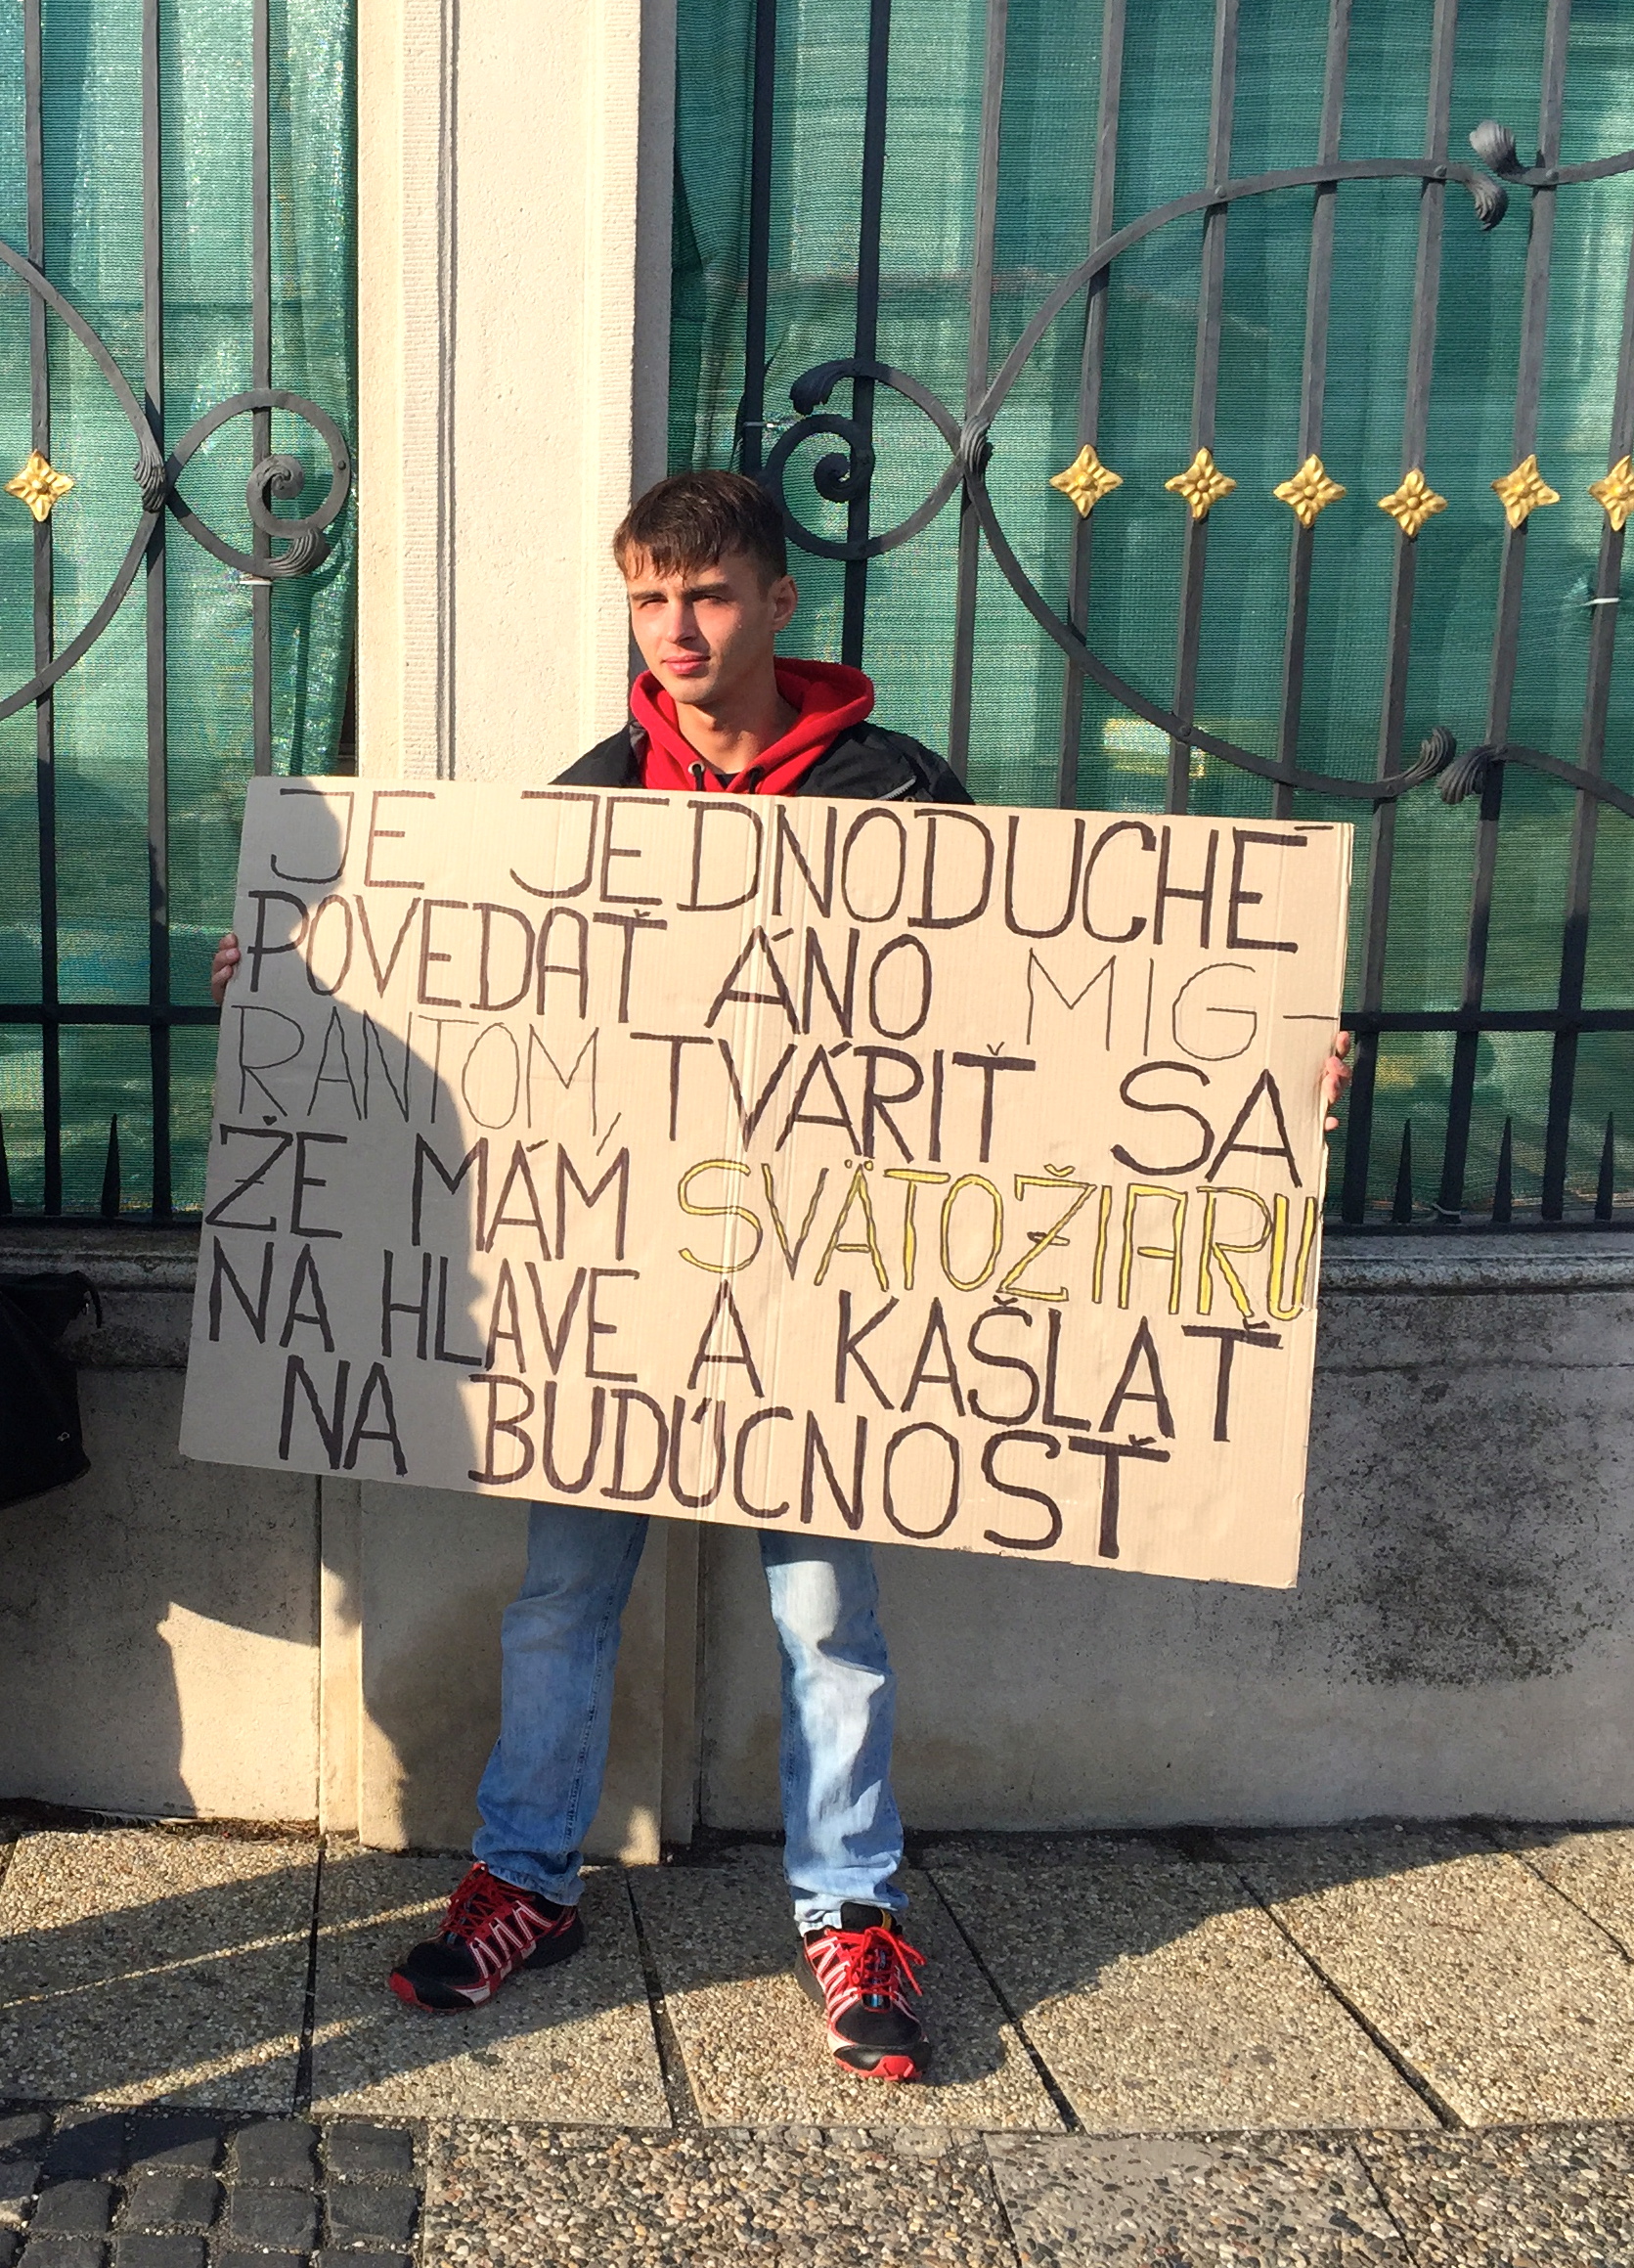 JE JEDNODUCHÉ
POVEDAŤ ÁNO MIG-
RANTOM, TVÁRIŤ SA
ŽE MÁM SVÄTOŽIARU
NA HLAVE A KAŠLAŤ
NA BUDÚCNOSŤ